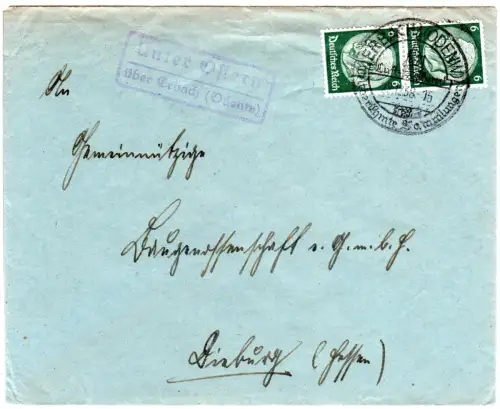 Unter Ostern
über Erbach (Odenw)
Deutsches Reich
6
6
Deutsches Reich
6
ERBACH (ODENW)
38.-15
berühmte Sammlungen
An
Gemeinnützige
Baugenossenschaft e. G. m. b. H.
Dieburg (Hessen)